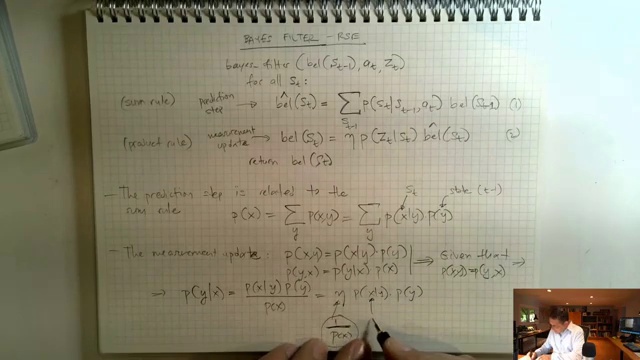 BAYES FILTER - RSE
bayes-filter (bel(S_{t-1}), a_t, Z_t)
for all S_t:
(sum rule) prediction step → b̂el(S_t) = ∑_{S_{t-1}} p(S_t|S_{t-1}, a_t) bel(S_{t-1}) (1)
(product rule) measurement update → bel(S_t) = η p(Z_t|S_t) b̂el(S_t) (2)
return bel(S_t)
- The prediction step is related to the S_t state (t-1)
sum rule p(x) = ∑_y p(x,y) = ∑_y p(x|y) p(y)
- The measurement update: p(x,y) = p(x|y)·p(y) ⇒ Given that →
p(y,x) = p(y|x) p(x) p(x,y) = p(y,x)
→ p(y|x) = p(x|y) p(y) / p(x) = η p(x|y)·p(y)
1 / p(x)